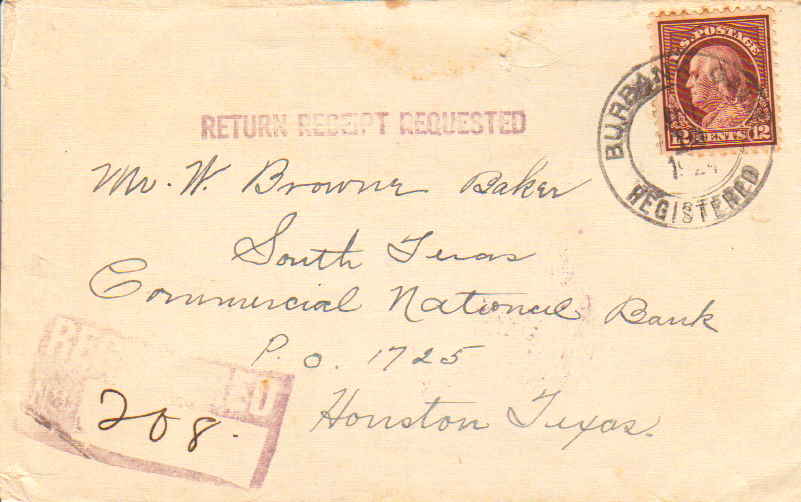 U.S. POSTAGE
12 CENTS 12
REGISTERED
RETURN RECEIPT REQUESTED
Mr. W. Browne Baker
South Texas
Commercial National Bank
P.O. 1725
Houston Texas.
208.